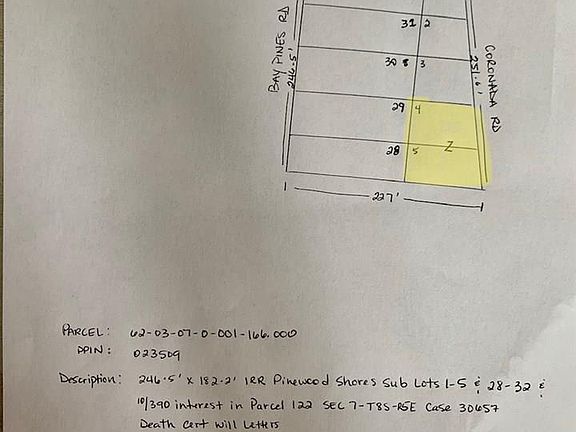 31 2
BAY PINES RD
246.5'
30 3
CORONADA RD
251.6'
29 4
28 5 Z
227'
PARCEL: 62-03-07-0-001-166.000
PPIN: 023509
Description: 246.5' x 182.2' IRR Pinewood Shores Sub Lots 1-5 & 28-32 &
10/390 interest in Parcel 122 SEC 7-T8S-R5E Case 30657
Death Cert Will Letters